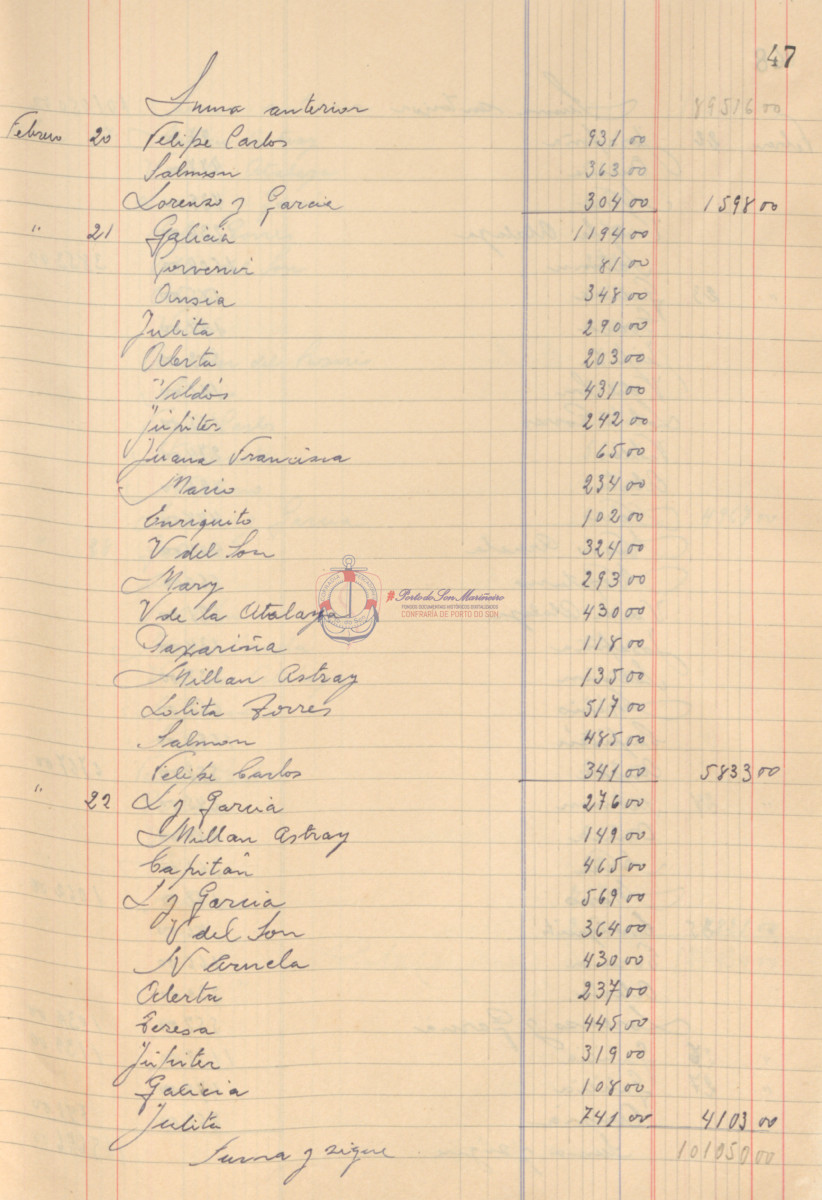 47
Suma anterior 89516 00
Febrero 20 Felipe Carlos 931 00
Salmon 363 00
Lorenzo y Garcia 304 00 1598 00
" 21 Galicia 1194 00
Porvenir 81 00
Ansia 348 00
Julita 290 00
Alerta 203 00
Vildós 431 00
Júpiter 242 00
Juana Francisca 65 00
Mario 234 00
Enriquito 102 00
V del Son 324 00
Mary 293 00
V de la Atalaya 430 00
Porto do Son Mariñeiro
FONDOS DOCUMENTAIS HISTÓRICOS DIXITALIZADOS
CONFRARIA DE PORTO DO SON
Paxariña 118 00
Millan Astray 135 00
Lolita Torres 517 00
Salmon 485 00
Felipe Carlos 341 00 5833 00
" 22 L y Garcia 276 00
Millan Astray 149 00
Capitán 465 00
L y Garcia 569 00
V del Son 364 00
N 430 00
Alerta 237 00
Teresa 445 00
Júpiter 319 00
Galicia 108 00
Julita 741 00 4103 00
Suma y sigue 101050 00